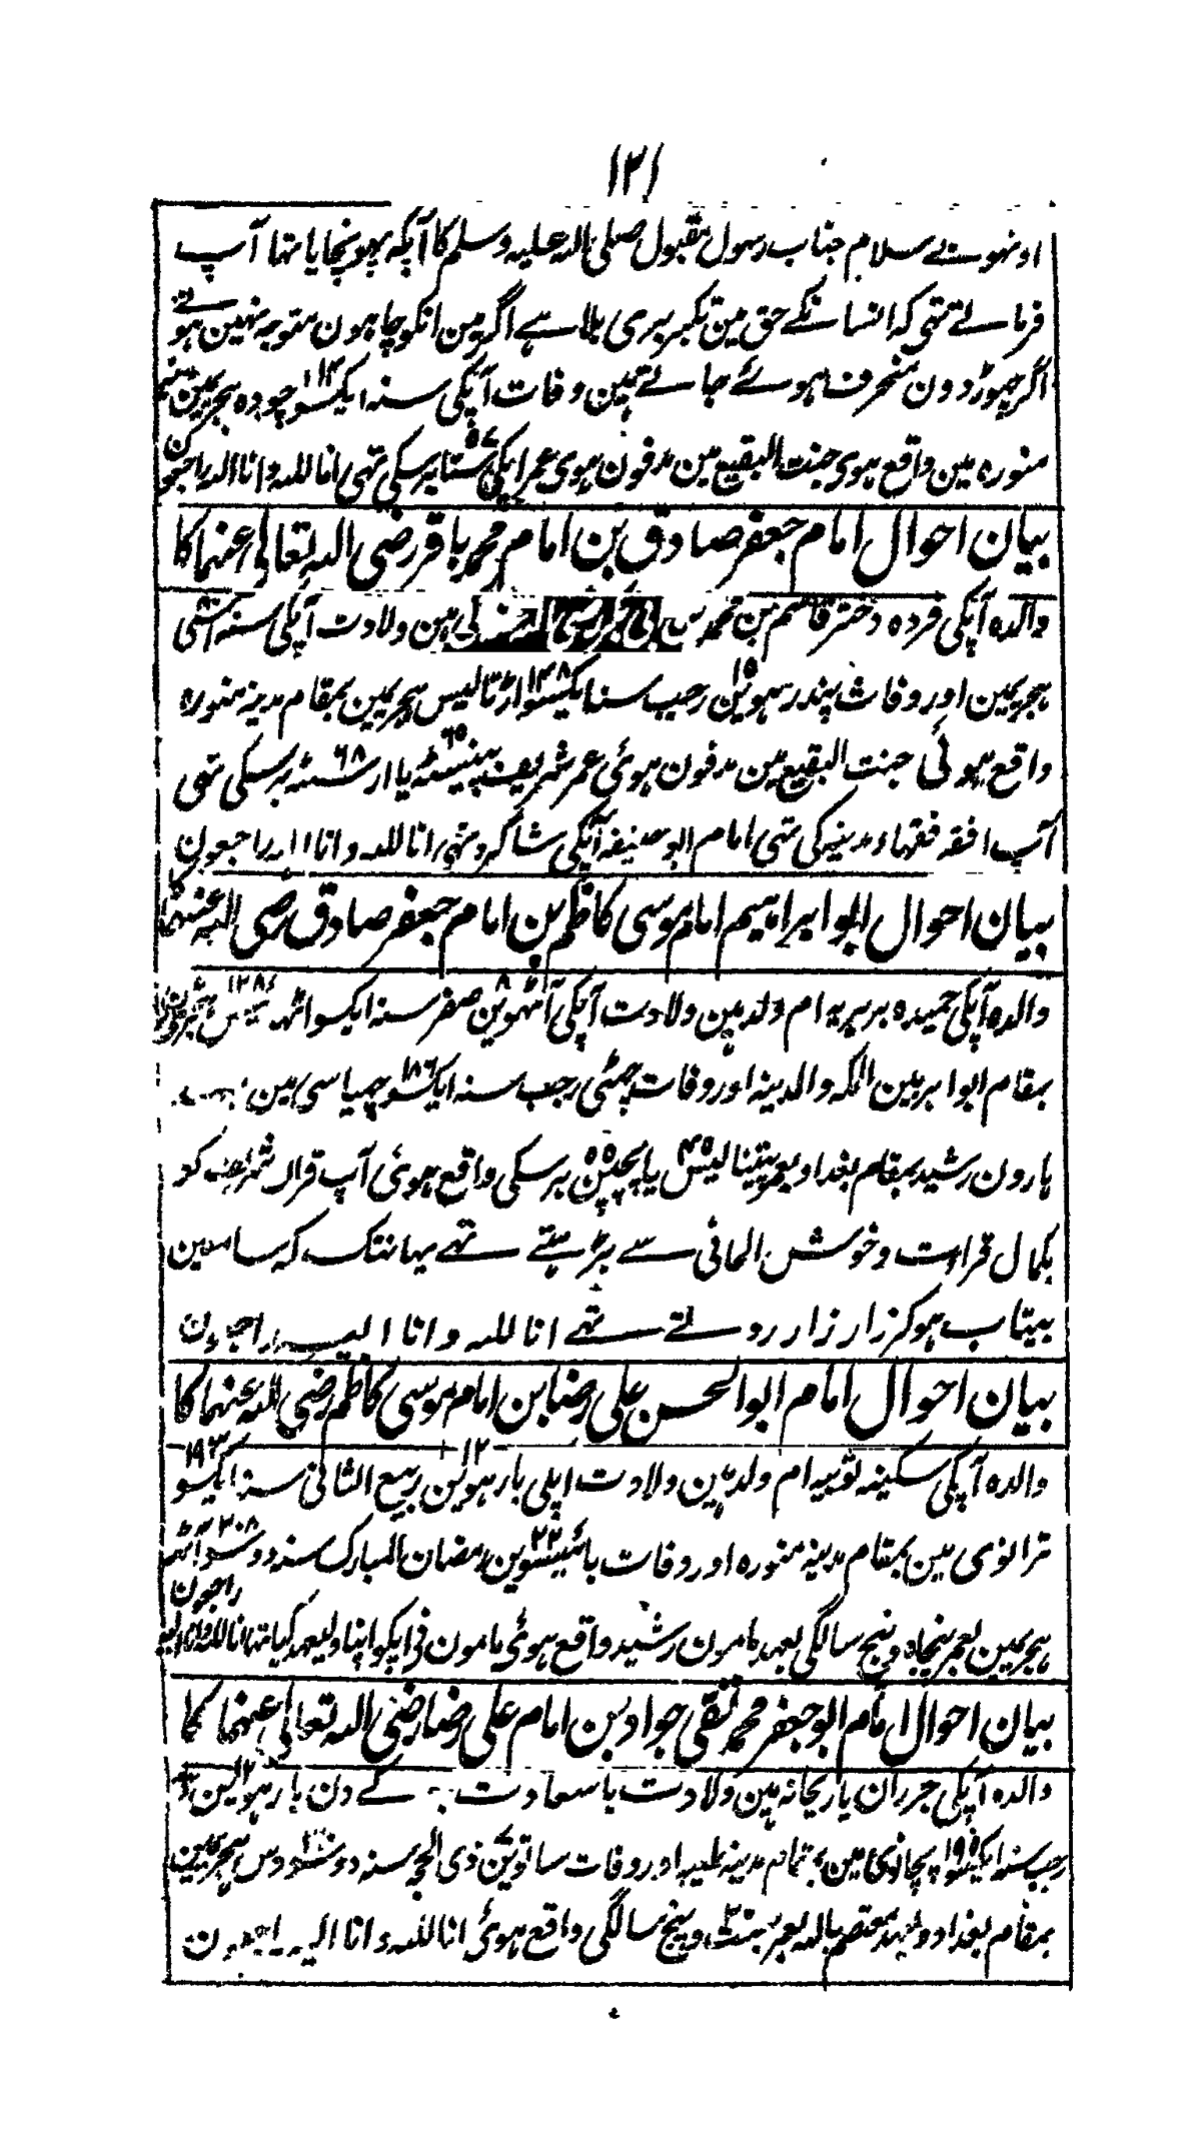 ۱۲۱
اونہونے سلام جناب رسول مقبول صلی اللہ علیہ وسلم کا آپکو پہونچایا تہا آپ
فرماتے تہی کہ انسانکے حق مین تکبر بری بلا ہے اگر مین انکو چاہون متوجہ نہین ہوتے
اگر چہوڑ دون منحرف ہوئے جاتے ہین وفات آپکی سنہ ایکسو چودہ ۱۱۴ ہجریمین
منورہ مین واقع ہوی جنت البقیع مین مدفون ہوی عمر آپکی ستاون ۵۷ برسکی تہی انا للہ وانا الیہ راجعون
بیان احوال امام جعفر صادق بن امام محمد باقر رضی اللہ تعالی عنہما کا
والدہ آپکی فردہ دختر قاسم بن محمد ہین ولادت آپکی سنہ اسّی
ہجریمین اور وفات پندرہوین ۱۵ رجب سنہ ایکسو اڑتالیس ۱۴۸ ہجریمین بمقام مدینہ منورہ
واقع ہوئی جنت البقیع مین مدفون ہوئی عمر شریف پینسٹہ ۶۵ یا ارسٹہ ۶۸ برسکی تہی
آپ افقہ فقہاء مدینہ کی تہی امام ابو حنیفہ آپکی شاگرد تہی انا للہ وانا الیہ راجعون
بیان احوال ابوابراہیم امام موسی کاظم بن امام جعفر صادق رضی اللہ عنہما کا
والدہ آپکی حمیدہ بربریہ ام ولد ہین ولادت آپکی آٹہوین ۸ صفر سنہ ایکسو
بمقام ابوا بربین المکہ والمدینہ اور وفات چہٹی رجب سنہ ایکسو چہیاسی ۱۸۶ مین
ہارون رشید بمقام بغداد بعمر پینتالیس ۴۵ یا پچپن ۵۵ برسکی واقع ہوئی آپ قرآن شریف کو
بکمال قراءت وخوش الحانی سے پڑہتے تہے یہانتک کہ سامعین
بیتاب ہوکر زار زار روتے تہے انا للہ وانا الیہ راجعون
بیان احوال امام ابوالحسن علی رضا بن امام موسی کاظم رضی اللہ عنہما کا
والدہ آپکی سکینہ نوبیہ ام ولد ہین ولادت آپکی بارہوین ۱۲ ربیع الثانی سنہ ایکسو
ترانوی ۱۹۳ مین بمقام مدینہ منورہ اور وفات بائیسوین ۲۲ رمضان المبارک سنہ دوسو آٹہ ۲۰۸
ہجریمین بعمر پنجاہ وپنج سالگی بعہد مامون رشید واقع ہوئی مامون نی آپکو اپنا ولیعہد کیا تہا انا للہ وانا الیہ راجعون
بیان احوال امام ابو جعفر محمد تقی جواد بن امام علی رضا رضی اللہ تعالی عنہما کا
والدہ آپکی جرران یا ریحانہ ہین ولادت با سعادت کے دن بارہوین ۱۲
رجب سنہ ایکسو پچانوی مین بمقام مدینہ طیبہ اور وفات ساتوین ۷ ذی الحجہ سنہ دوسو دس ہجریمین
بمقام بغداد وبعہد معتصم باللہ بعمر وپنج سالگی واقع ہوئی انا للہ وانا الیہ راجعون